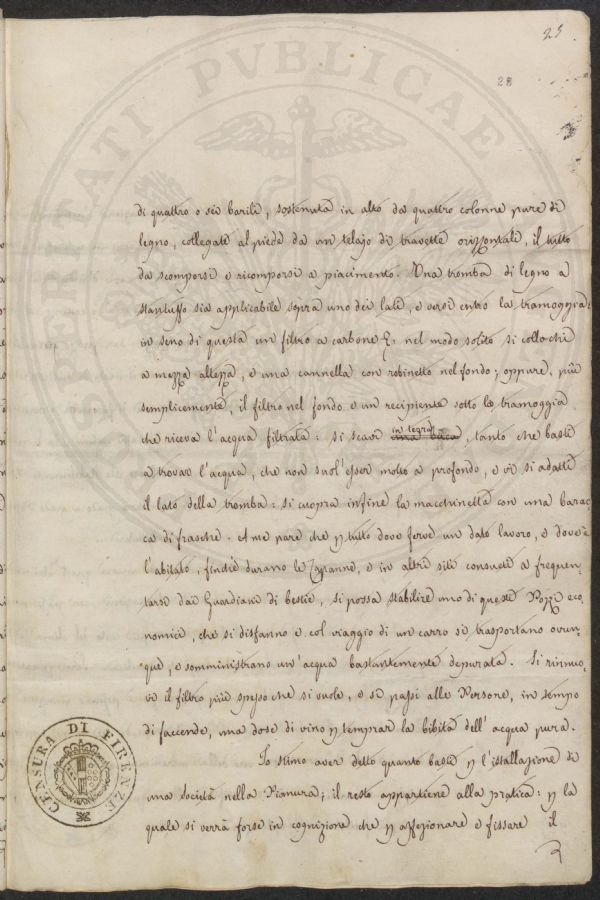 25
28
di quattro o sei barili, sostenuta in alto da quattro colonne pure di
legno, collegate al piede da un telajo di travette orizzontale, il tutto
da scomporsi e ricomporsi a piacimento. Una tromba di legno a
stantuffo sia applicabile sopra uno dei lati, e versi entro la tramoggia:
in seno di questa un filtro a carbone &, nel modo solito si collochi
a mezza altezza, e una cannella con robinetto nel fondo; oppure, più
semplicemente, il filtro nel fondo e un recipiente sotto la tramoggia
che riceva l'acqua filtrata: si scavi una buca in terra, tanto che basti
a trovar l'acqua, che non suol'esser molto a profondo, e vi si adatti
il lato della tromba: si cuopra infine la macchinetta con una barac,
ca di frasche. A me pare che p tutto dove ferve un dato lavoro, e dove è
l'abitato, finchè durano le Capanne, e in altri siti consueti a frequen,
tarsi dai Guardiani di bestie, si possa stabilire uno di questi Pozzi eco,
nomici, che si disfanno e col viaggio di un carro si trasportano ovun,
que, e somministrano un'acqua bastantemente depurata. Si rinnuo,
vi il filtro più spesso che si vuole, e si passi alle Persone, in tempo
di faccende, una dose di vino p temprar la bibita dell'acqua pura.
Io stimo aver detto quanto basti p l'istallazione di
una Società nella Pianura; il resto appartiene alla pratica: p la
quale si verrà forse in cognizione che p affezionare e fissare il
CENSURA DI FIRENZE
PROSPERITATI PVBLICAE